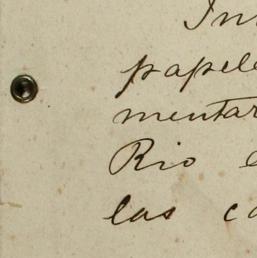 In
papele
mentar
Rio
las ca